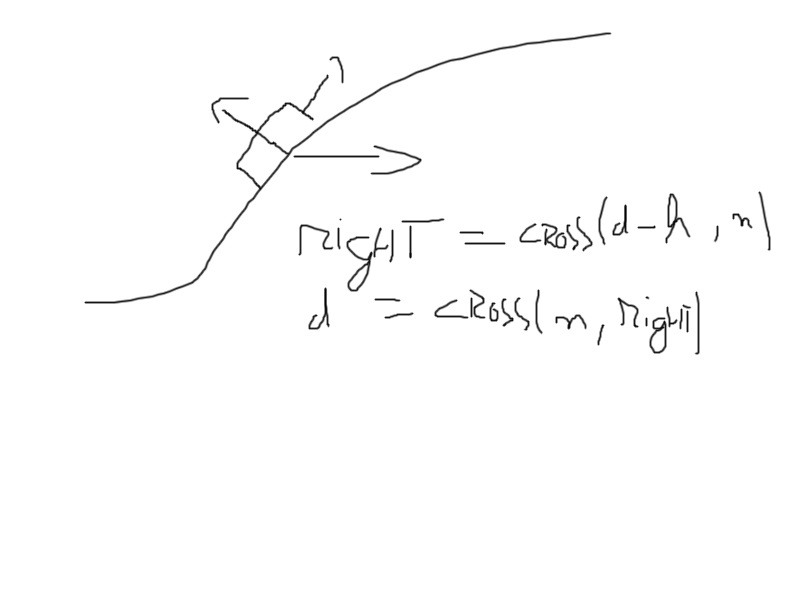 RigHT = CROSS(d-h, n)
d = CROSS(n, RigHT)